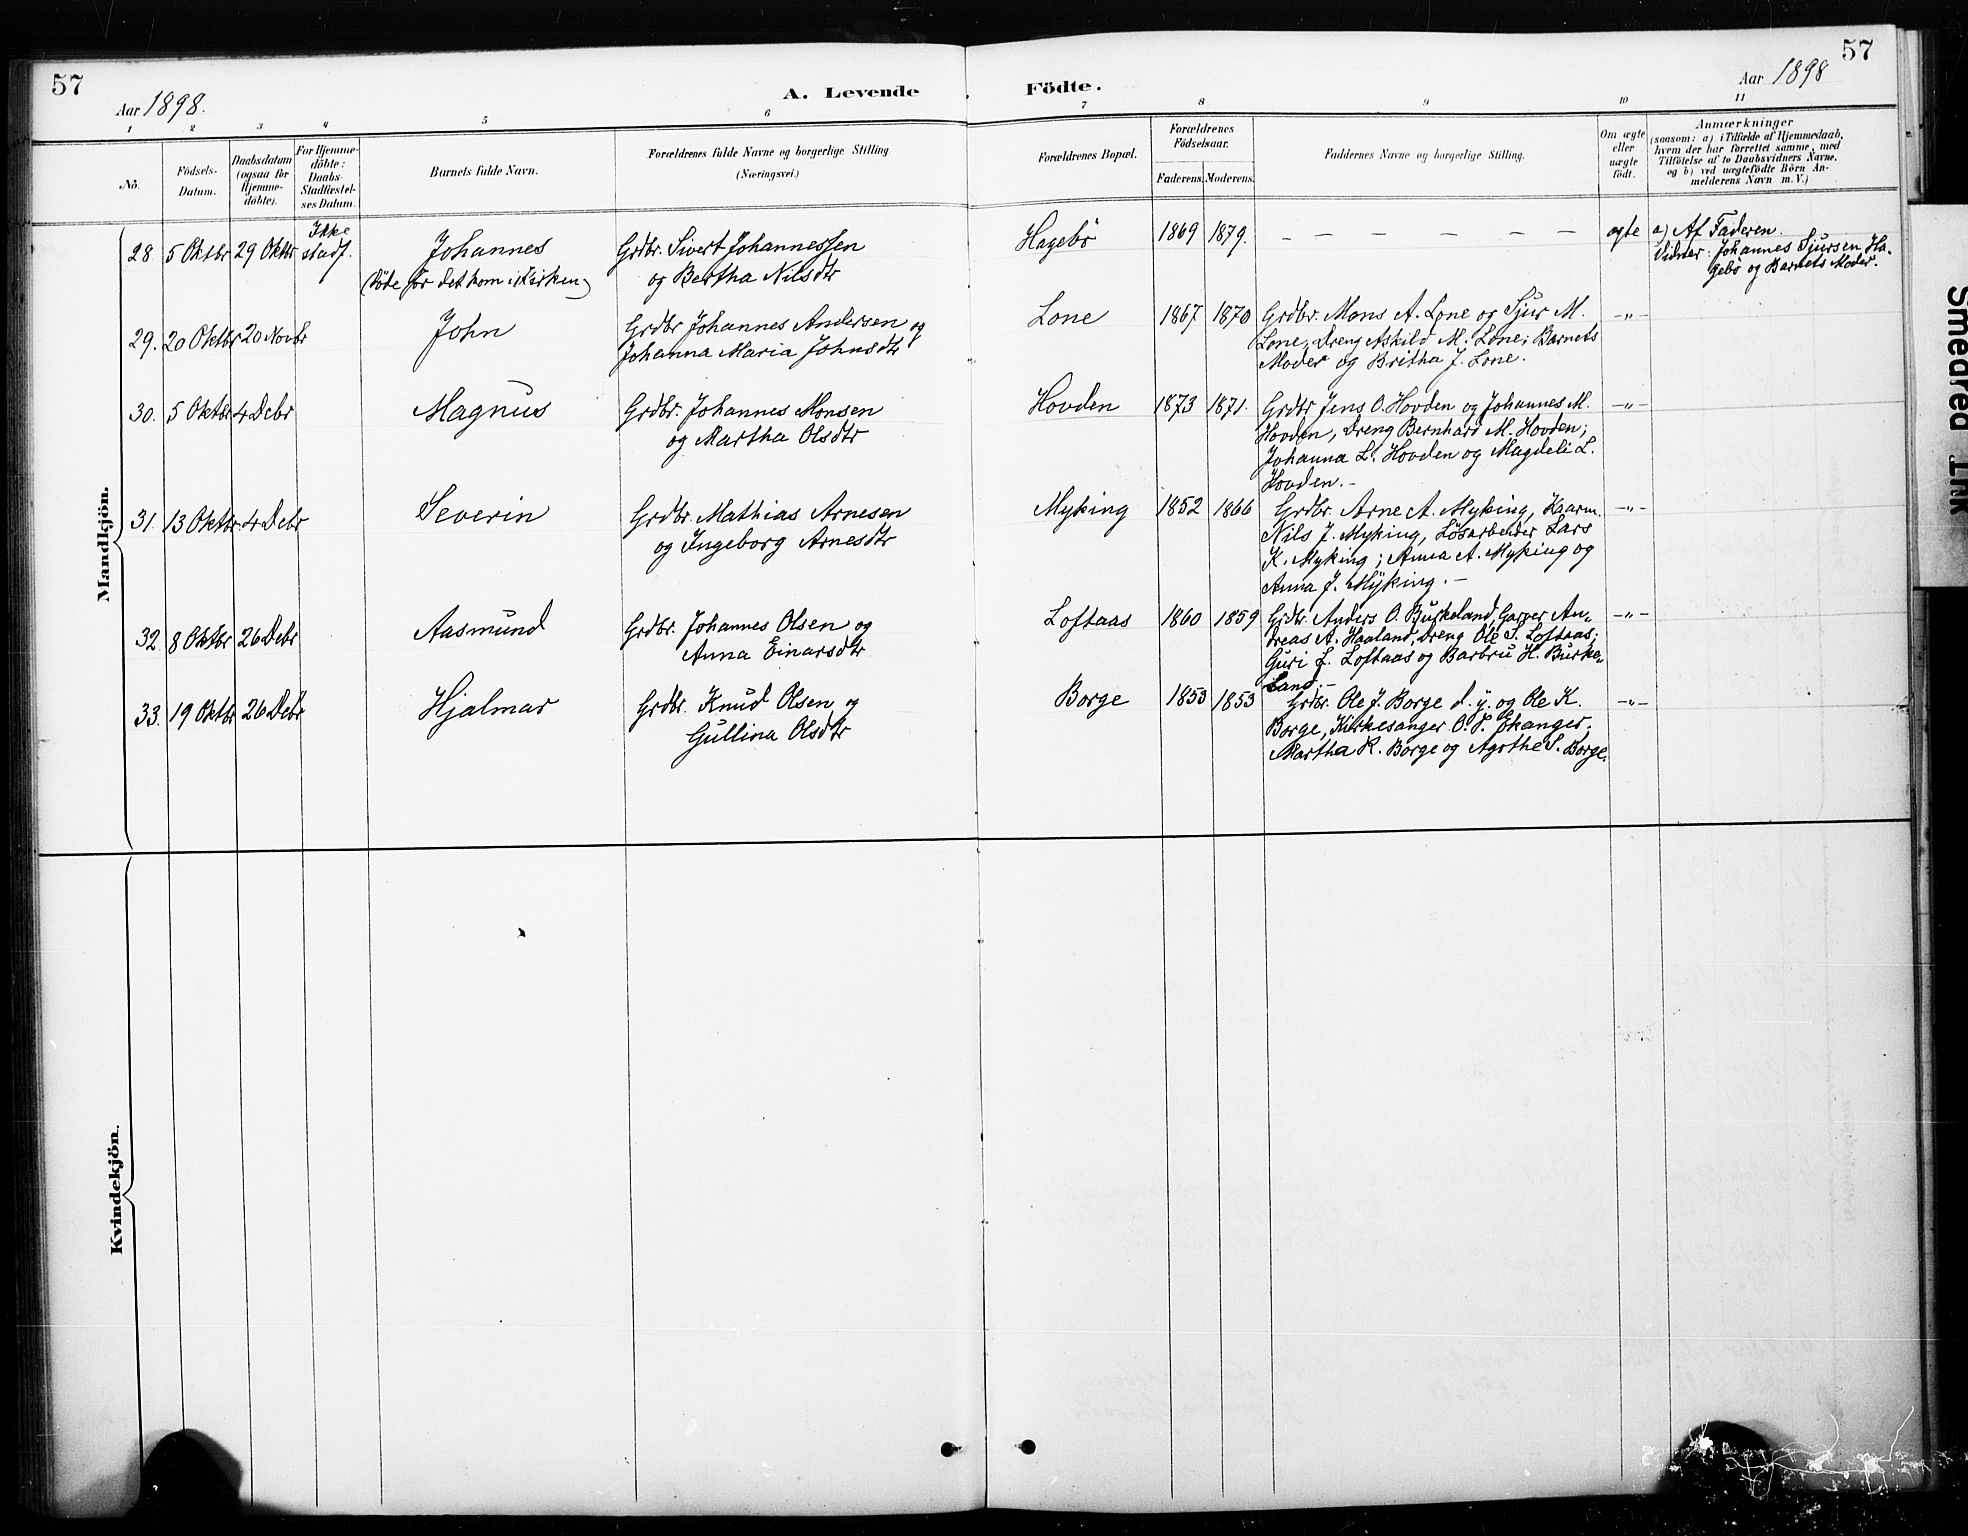 57
Aar 1898.
A. Levende Födte.
Aar 1898
57
1 2 3 4 5 6 7 8 9 10 11
No.
Födsels-
Datum.
Daabsdatum
(ogsaa for
Hjemme-
döbte).
For Hjemme-
döbte:
Daabs-
Stadfæstel-
ses Datum.
Barnets fulde Navn.
Forældrenes fulde Navne og borgerlige Stilling
(Næringsvei.)
Forældrenes Bopæl.
Forældrenes
Födselsaar.
Faderens. Moderens.
Faddernes Navne og borgerlige Stilling.
Om ægte
eller
uægte
födt.
Anmærkninger
(saasom: a) i Tilfælde af Hjemmedaab,
hvem der har forrettet samme, med
Tilföielse af to Daabsvidners Navne,
og b) ved uægtefödte Börn An-
melderens Navn m. V.)
Mandkjön.
28 5 Oktbr 29 Oktbr Ikke
stadf.
Johannes
(Döde för det kom i Kirken)
Grdbr. Sivert Johannessen
og Bertha Nilsdtr
Hagebö 1869 1879. — — — — — — — ægte
a) Af Faderen.
Vidner: Johannes Sjursen Ha-
gebö og Barnets Moder.
29. 20 Oktbr 20 Novbr John
Grdbr Johannes Andersen og
Johanna Maria Johnsdtr
Lone 1867 1870
Grdbr. Mons A. Lone og Sjur M.
Lone, Dreng Askild M. Lone; Barnets
Moder og Britha J. Lone.
-"-
30. 5 Oktbr 4 Debr Magnus
Grdbr. Johannes Monsen
og Martha Olsdtr
Hovden 1873 1871.
Grdbr Jens O. Hovden og Johannes M.
Hovden, Dreng Bernhard M. Hovden;
Johanna L. Hovden og Magdeli L.
Hovden. -
-"-
31. 13 Oktbr. 4 Debr Severin
Grdbr. Mathias Arnesen
og Ingeborg Arnesdtr
Myking 1852 1866
Grdbr. Arne A. Myking, Kaarm.
Nils J. Myking, Lösarbeider Lars
K. Myking; Anna A. Myking og
Anna J. Myking. -
-"-
32. 8 Oktbr 26 Debr Aasmund
Grdbr. Johannes Olsen og
Anna Einarsdtr
Loftaas 1860 1859
Grdbr. Anders O. Burkeland, Garver An-
dreas A. Haaland, Dreng Ole S. Loftaas;
Guri L. Loftaas og Barbru H. Burke-
land. -
-"-
33. 19 Oktbr 26 Debr Hjalmar
Grdbr. Knud Olsen og
Gullina Olsdtr
Borge 1853 1853
Grdbr. Ole J. Borge d. y. og Ole K.
Borge, Kirkesanger O. P. Ekanger;
Martha K. Borge og Agathe S. Borge.
-"-
Kvindekjön.
Smeared Ink